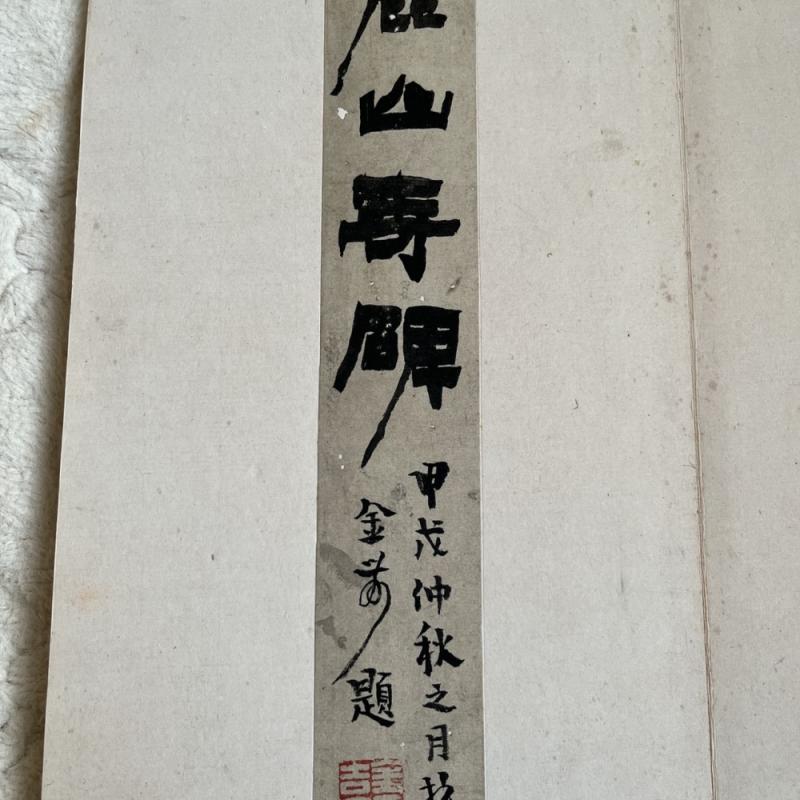 山寺碑
甲戌仲秋之月
金農題